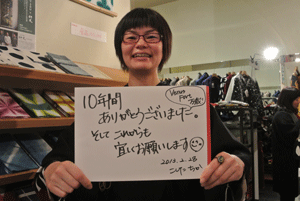 10年間
ありがとうございました。
そして これからも
宜しくお願いします
2010.2.28
Venus
Fort